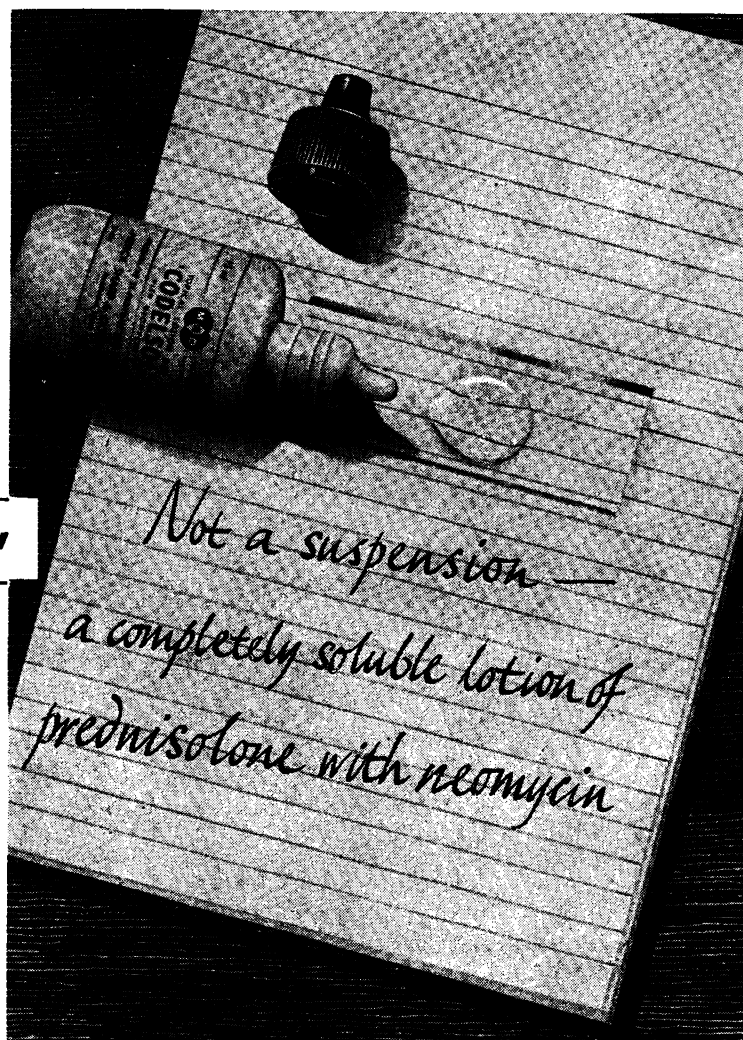 Not a suspension —
a completely soluble lotion of
prednisolone with neomycin